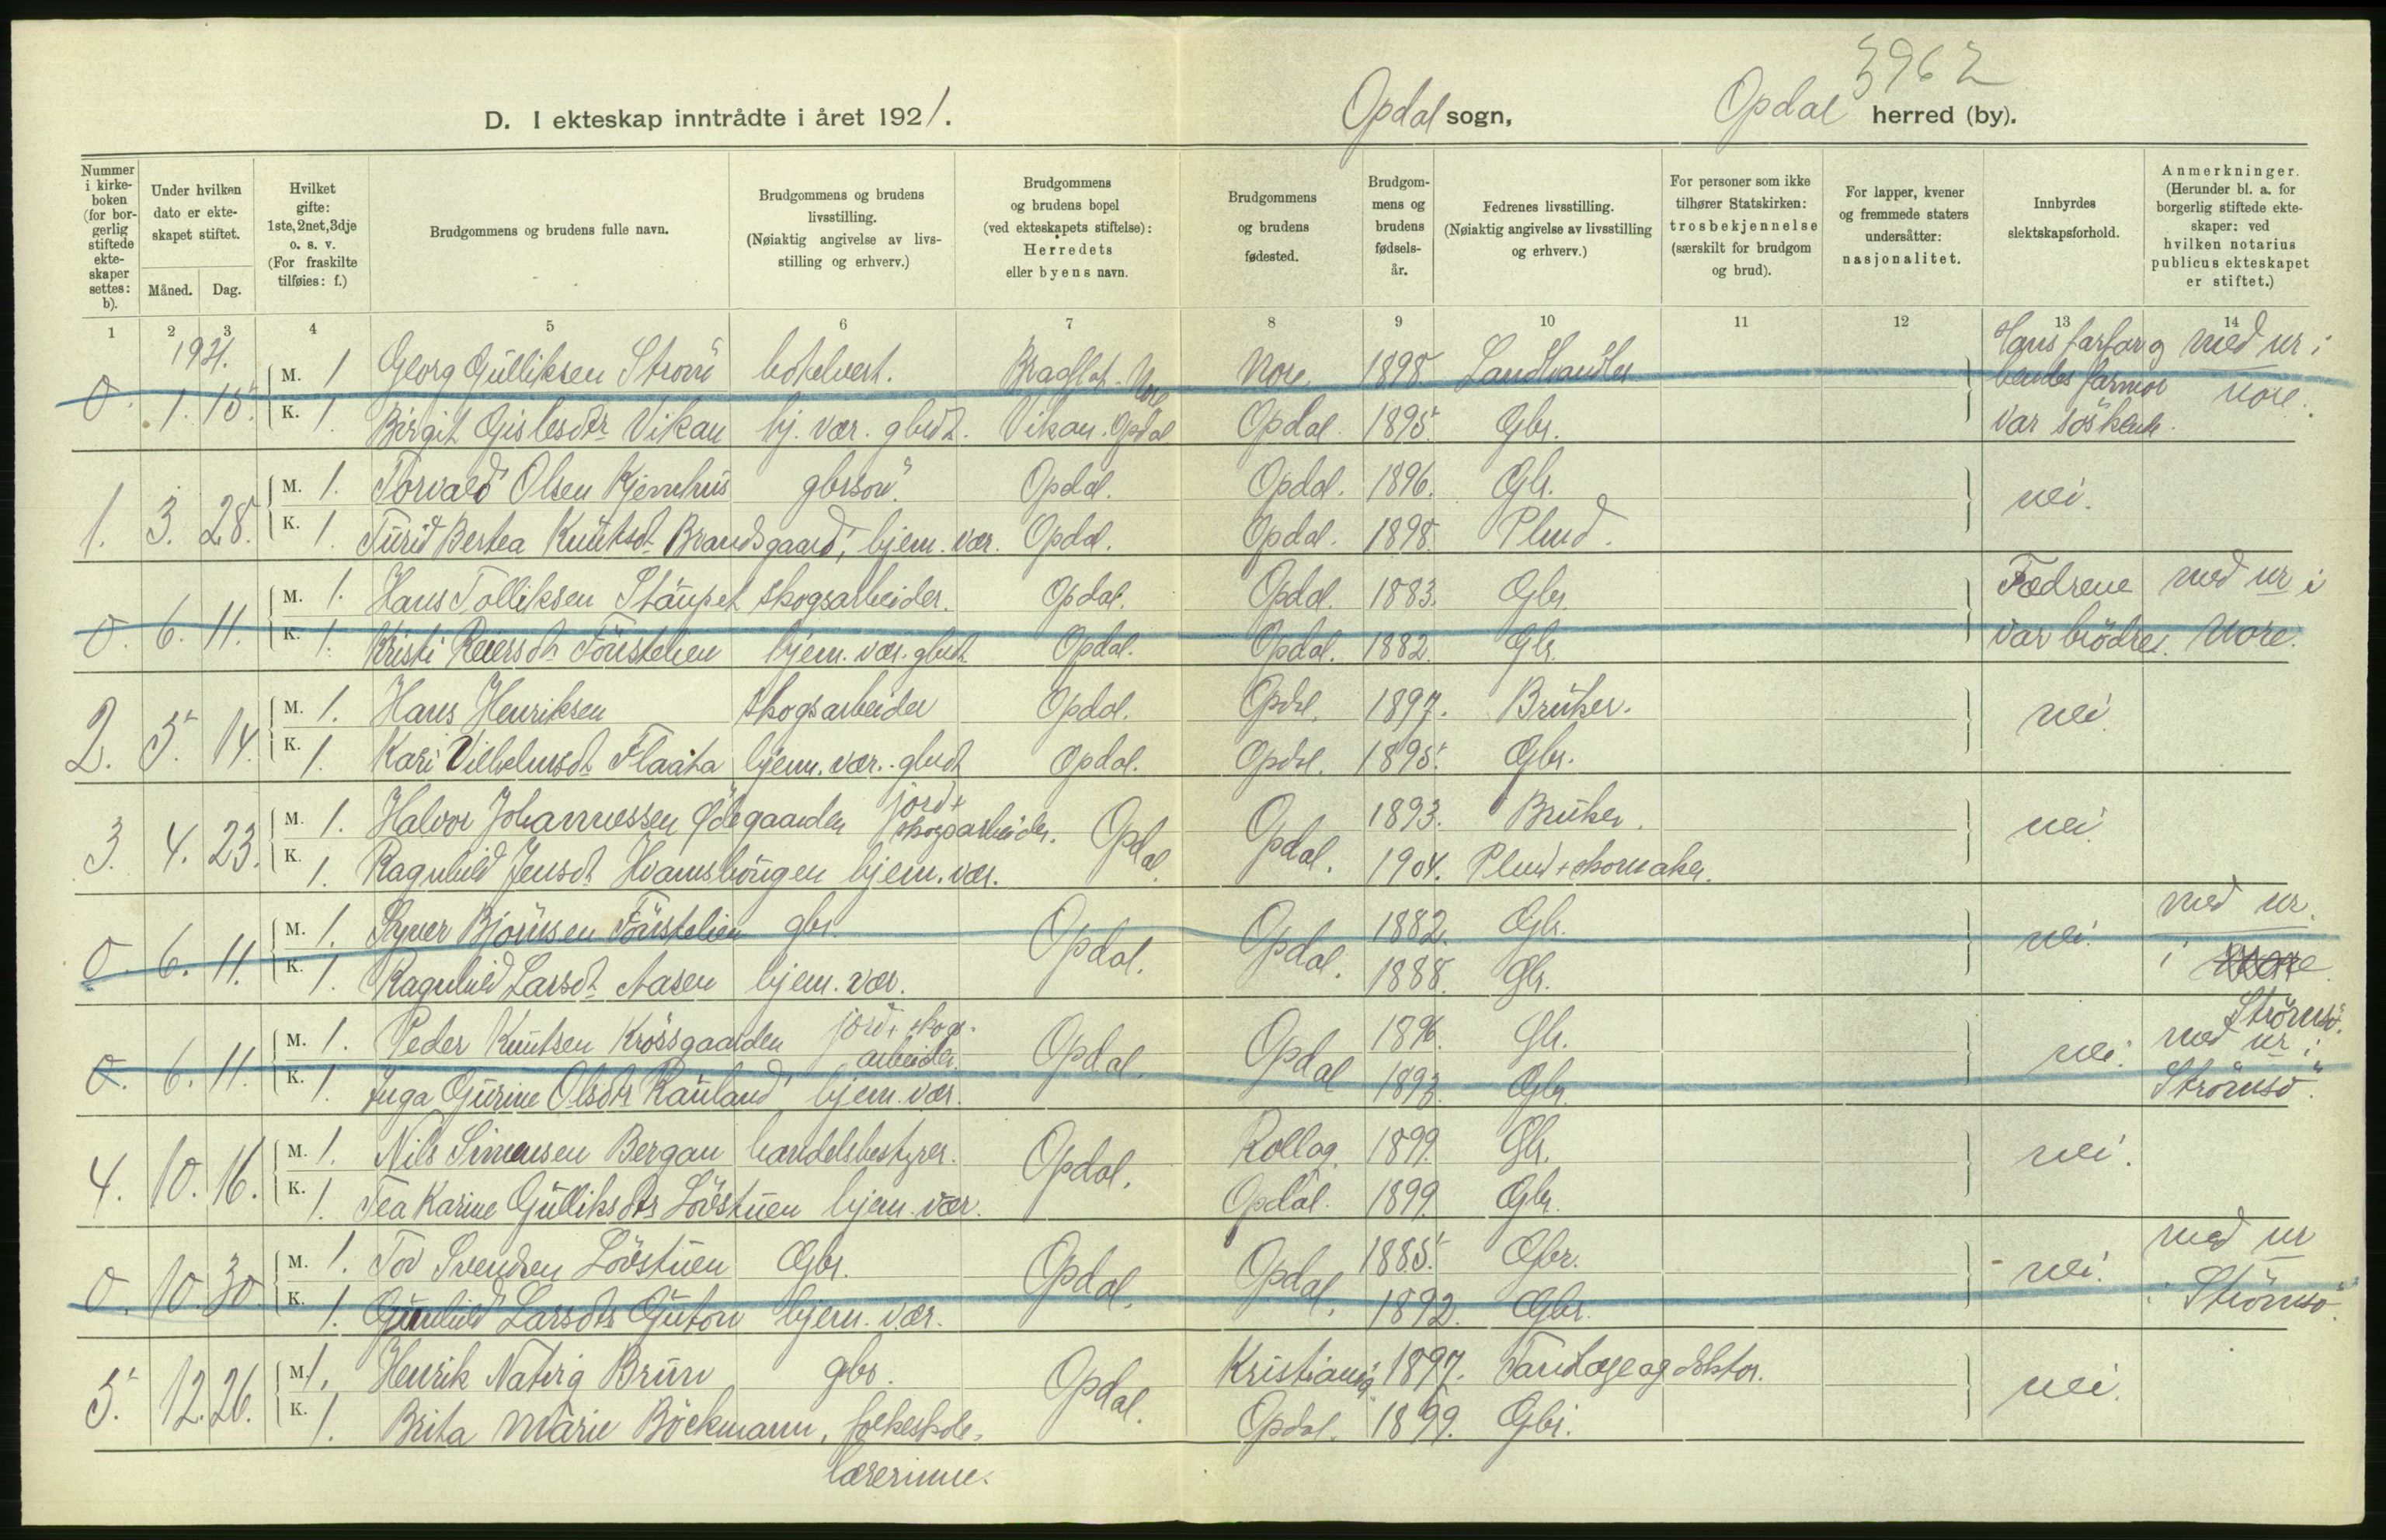 3962
D. I ekteskap inntrådte i året 1921. Opdal sogn, Opdal herred (by).
Nummer i kirkeboken (for borgerlig stiftede ekteskaper settes: b).
Under hvilken dato er ekteskapet stiftet. Måned. Dag.
Hvilket gifte: 1ste, 2net, 3dje o. s. v. (For fraskilte tilføies: f.)
Brudgommens og brudens fulle navn.
Brudgommens og brudens livsstilling. (Nøiaktig angivelse av livsstilling og erhverv.)
Brudgommens og brudens bopel (ved ekteskapets stiftelse): Herredets eller byens navn.
Brudgommens og brudens fødested.
Brudgommens og brudens fødselsår.
Fedrenes livsstilling. (Nøiaktig angivelse av livsstilling og erhverv.)
For personer som ikke tilhører Statskirken: trosbekjennelse (særskilt for brudgom og brud).
For lapper, kvener og fremmede staters undersåtter: nasjonalitet.
Innbyrdes slektskapsforhold.
Anmerkninger. (Herunder bl. a. for borgerlig stiftede ekteskaper: ved hvilken notarius publicus ekteskapet er stiftet.)
1 2 3 4 5 6 7 8 9 10 11 12 13 14
1921.
0. 1. 15. M. 1 Georg Gulliksen Strøm hotelvert. Nore Nore 1898. Landhandler Hans farfar og med nr i
K. 1. Birgit Gislesdtr Vikan hj. vær. gbrdt. Vikan. Opdal Opdal. 1895. Gbr. hendes farmor var søskende. Nore.
1. 3. 28. M. 1. Torvald Olsen Kjemhus gbrsøn. Opdal. Opdal. 1896. Gbr. nei.
K. 1. Turid Bertea Knutsdt. Brandsgaard, hjem. vær. Opdal. Opdal. 1898. Plmd.
0. 6. 11. M. 1. Hans Tolliksen Staupet skogsarbeider. Opdal. Opdal. 1883. Gbr. Fædrene med nr i
K. 1. Kristi Reiersdt. Fønstelien hjem. vær. gbrdt Opdal. Opdal. 1882. Gbr. var brødre. Nore.
2. 5. 14. M. 1. Hans Henriksen skogsarbeider Opdal. Opdal. 1897. Bruker. nei.
K. 1. Kari Vilhelmsdt Flaata hjem. vær. gbrdt Opdal. Opdal. 1895. Gbr.
3. 4. 23. M. 1. Halvor Johannessen Ødegaarden jord + skogsarbeider. Opdal. Opdal. 1893. Bruker. nei.
K. 1. Ragnhild Jensdt. hjem. vær. 1904. Plmd + skomaker.
0. 6. 11. M. 1. Syver Bjørnsen Fønstelien gbr. Opdal. Opdal. 1882. Gbr. nei. med nr.
K. 1. Ragnhild Larsdt. Aasen hjem. vær. 1888. Gbr. i Nore Strømsø.
0. 6. 11. M. 1. Peder Knutsen Krossgaarden jord + skogsarbeider. Opdal. Opdal 1896. Gbr. nei. med nr i
K. 1. Inga Gurine Olsdtr Rauland hjem. vær. 1893. Gbr. Strømsø.
4. 10. 16. M. 1. Nils Simensen Bergan handelsbestyrer. Opdal. Rollag. 1899. Gbr. nei.
K. 1. Tea Karine Gulliksdtr Løvstuen hjem. vær. Opdal. 1899. Gbr.
0. 10. 30. M. 1. Tov Svendsen Løvstuen Gbr. Opdal. Opdal. 1885. Gbr. nei. med nr
K. 1. Gunhild Larsdtr Guton hjem. vær. 1892. Gbr. i Strømsø.
5. 12. 26. M. 1. Henrik Natvig Brun gbr. Opdal. Kristiania 1897. Tandlæge og doktor. nei.
K. 1. Brita Marie Böckmann, folkeskole- Opdal. 1899. Gbr.
lærerinne.